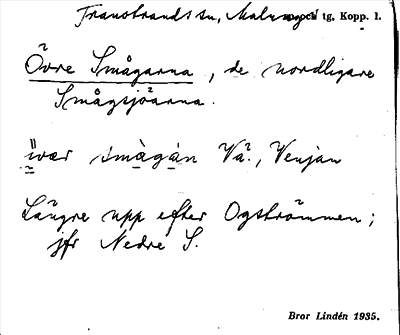 Transtrands sn, Malungs och tg, Kopp. l.
Övre Smågarna, de nordligare
Smågsjöarna.
ïvær smàgàn Vå?, Venjan
Längre upp efter Ogströmmen;
jfr Nedre S.
Bror Lindén 1935.